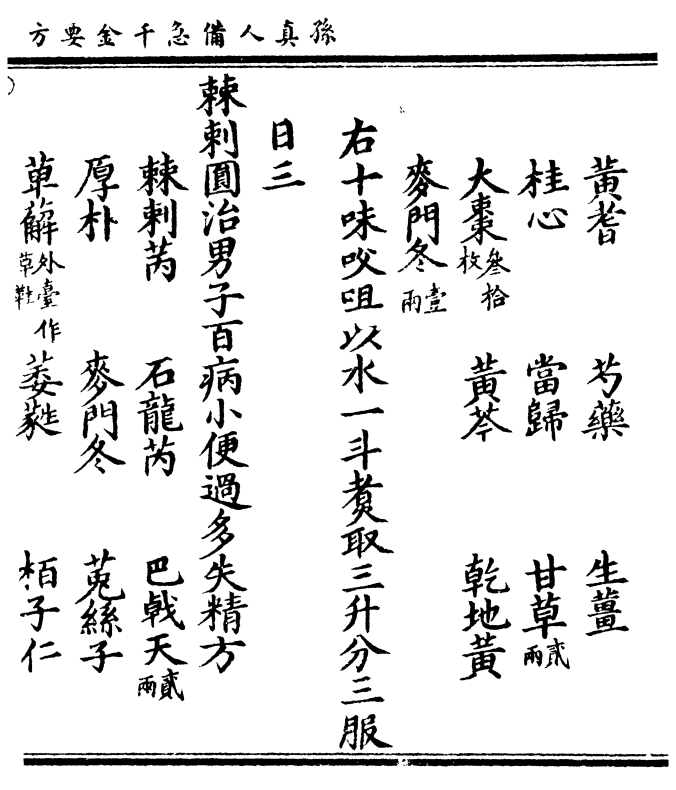 孫真人備急千金要方
黃耆 芍藥 生薑
桂心 當歸 甘草貳兩
大棗叁拾枚 黃芩 乾地黃
麥門冬壹兩
右十味㕮咀以水一斗煑取三升分三服
日三
棘刺圓治男子百病小便過多失精方
棘刺芮 石龍芮 巴戟天貳兩
厚朴 麥門冬 菟絲子
萆薢外臺作草鞋 萎蕤 栢子仁